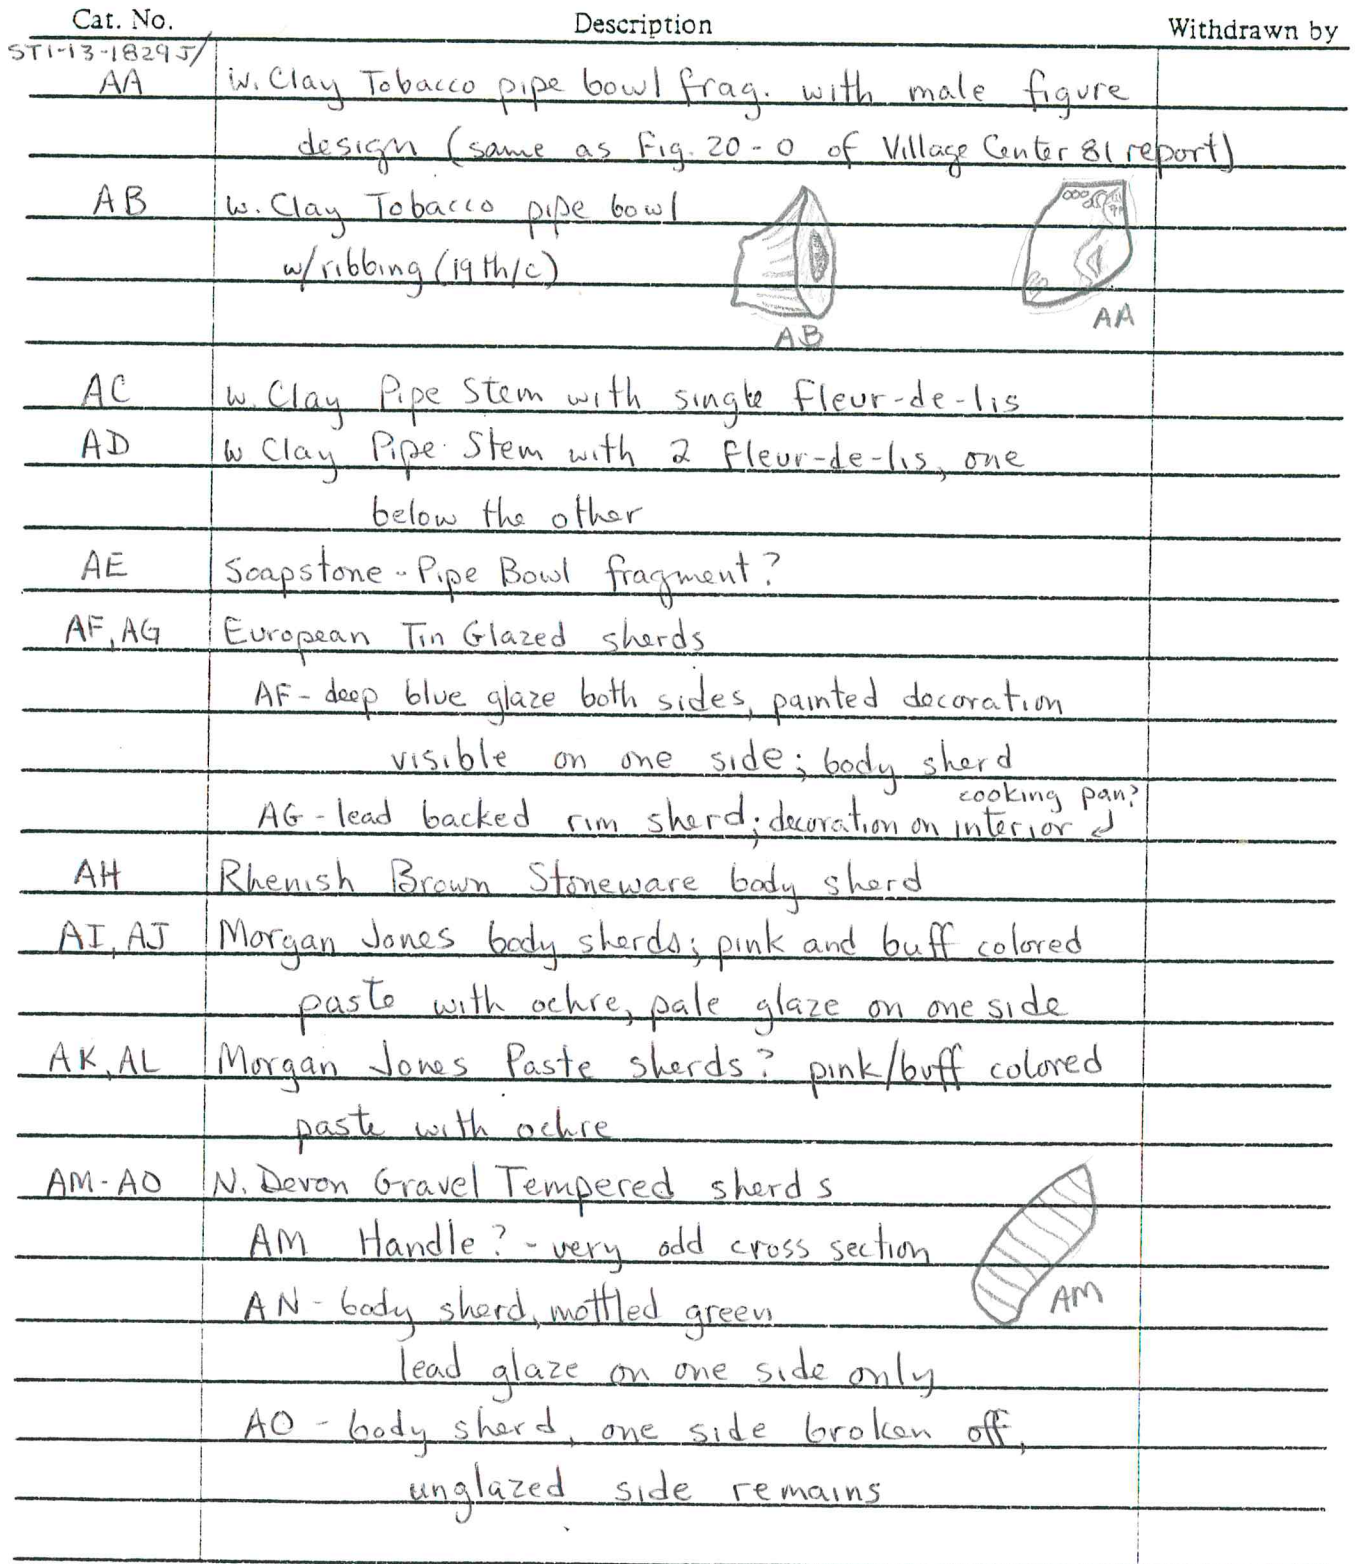 Cat. No. Description Withdrawn by
ST1-13-1829J/
AA w. Clay Tobacco pipe bowl frag. with male figure
design (same as Fig. 20-O of Village Center 81 report)
AB w. Clay Tobacco pipe bowl
w/ribbing (19th/c)
AB AA
AC w. Clay Pipe Stem with single fleur-de-lis
AD w Clay Pipe Stem with 2 fleur-de-lis, one
below the other
AE Soapstone - Pipe Bowl fragment?
AF, AG European Tin Glazed sherds
AF - deep blue glaze both sides, painted decoration
visible on one side; body sherd
cooking pan?
AG - lead backed rim sherd; decoration on interior
AH Rhenish Brown Stoneware body sherd
AI, AJ Morgan Jones body sherds; pink and buff colored
paste with ochre, pale glaze on one side
AK, AL Morgan Jones Paste sherds? pink/buff colored
paste with ochre
AM-AO N. Devon Gravel Tempered sherds
AM Handle? - very odd cross section
AN - body sherd, mottled green AM
lead glaze on one side only
AO - body sherd, one side broken off,
unglazed side remains